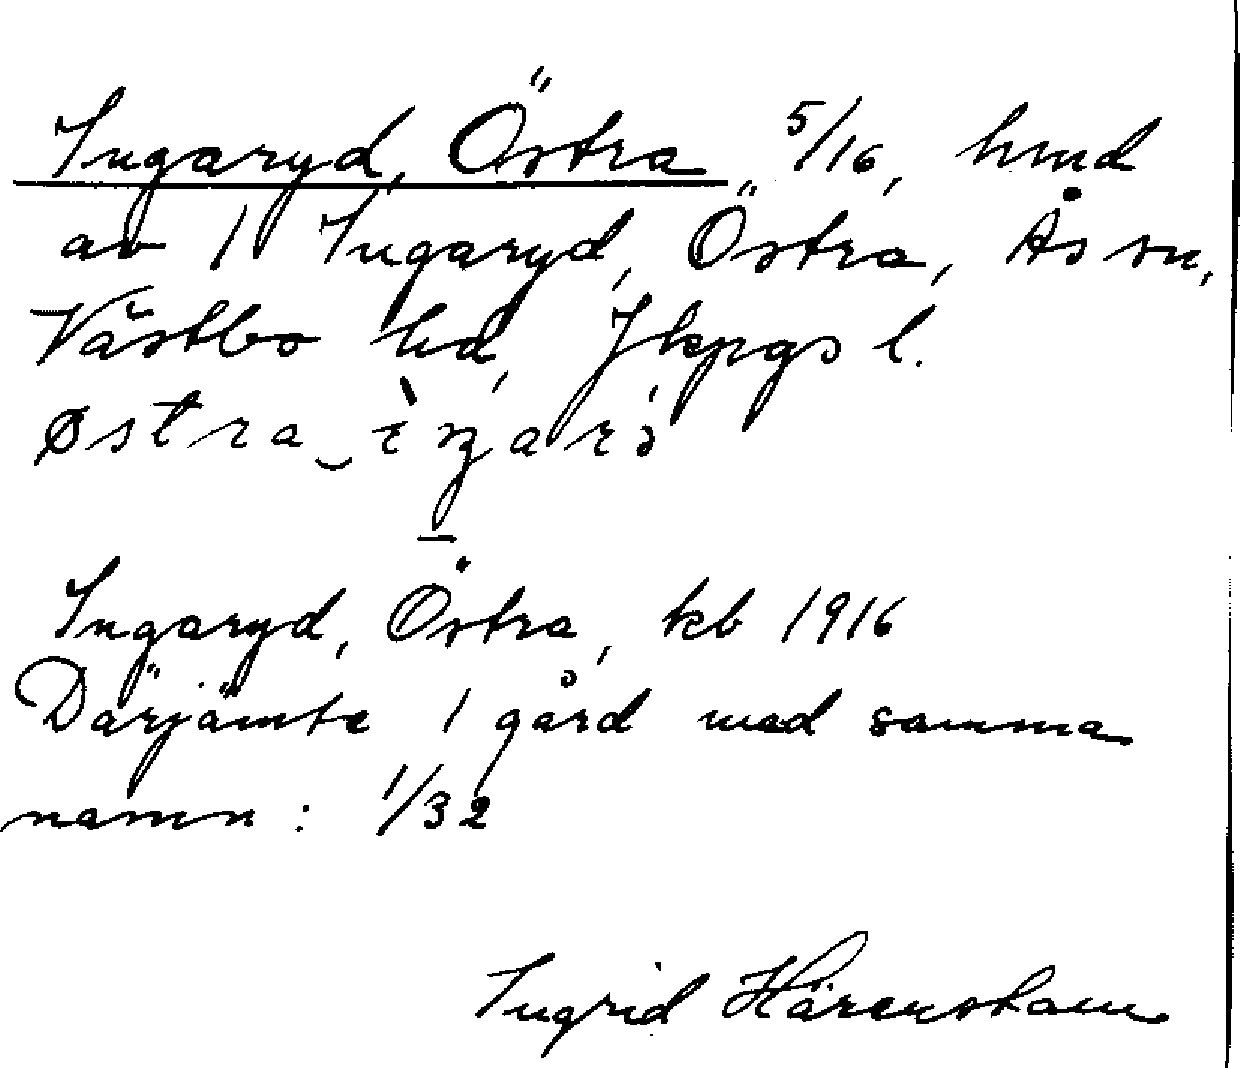 Ingaryd, Östra 5/16, hmd
av 1 Ingaryd, Östra, Ås sn,
Västbo hd, Jkpgs l.
Ingaryd, Östra, kb 1916
Därjämte 1 gård med samma
namn: 1/32
Ingrid Härenstam